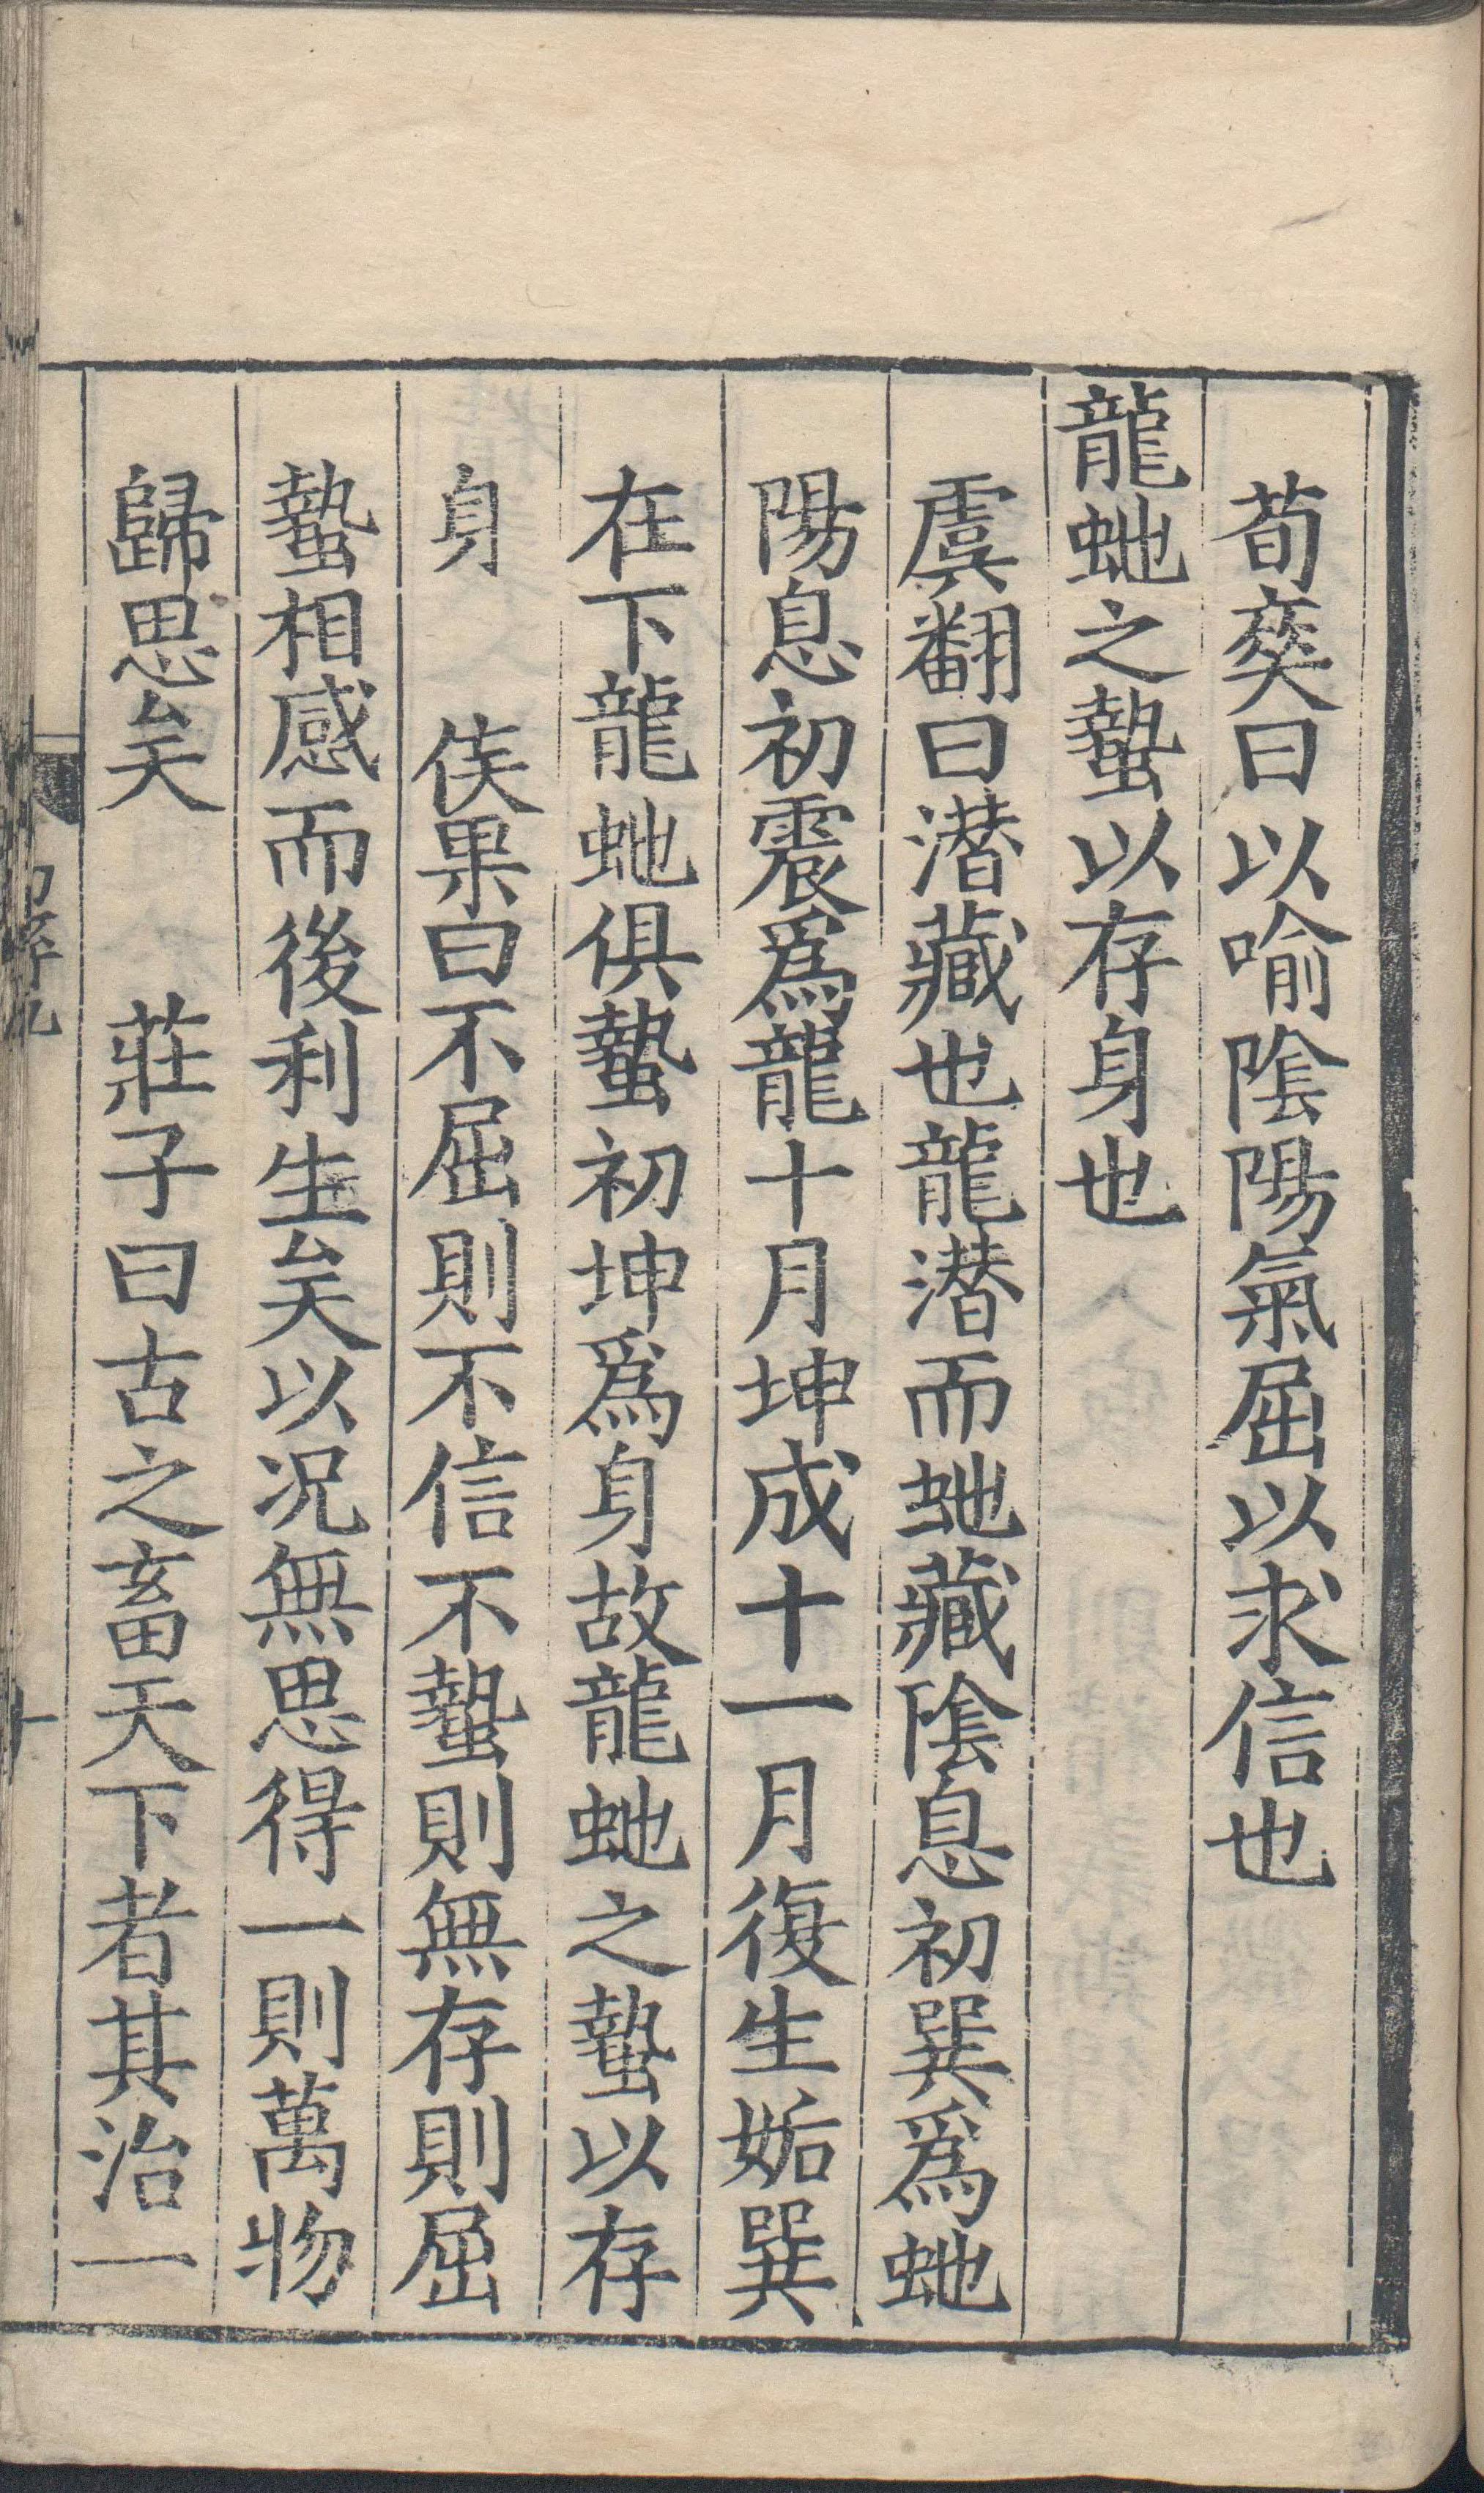 荀爽曰以喻隂陽氣屈以求信也
龍虵之蟄以存身也
虞翻曰潛藏也龍潛而虵藏隂息初巽爲虵
陽息初震爲龍十月坤成十一月復生姤巽
在下龍虵俱蟄初坤爲身故龍虵之蟄以存
身　侯果曰不屈則不信不蟄則無存則屈
蟄相感而後利生矣以况無思得一則萬物
歸思矣　莊子曰古之畜天下者其治一